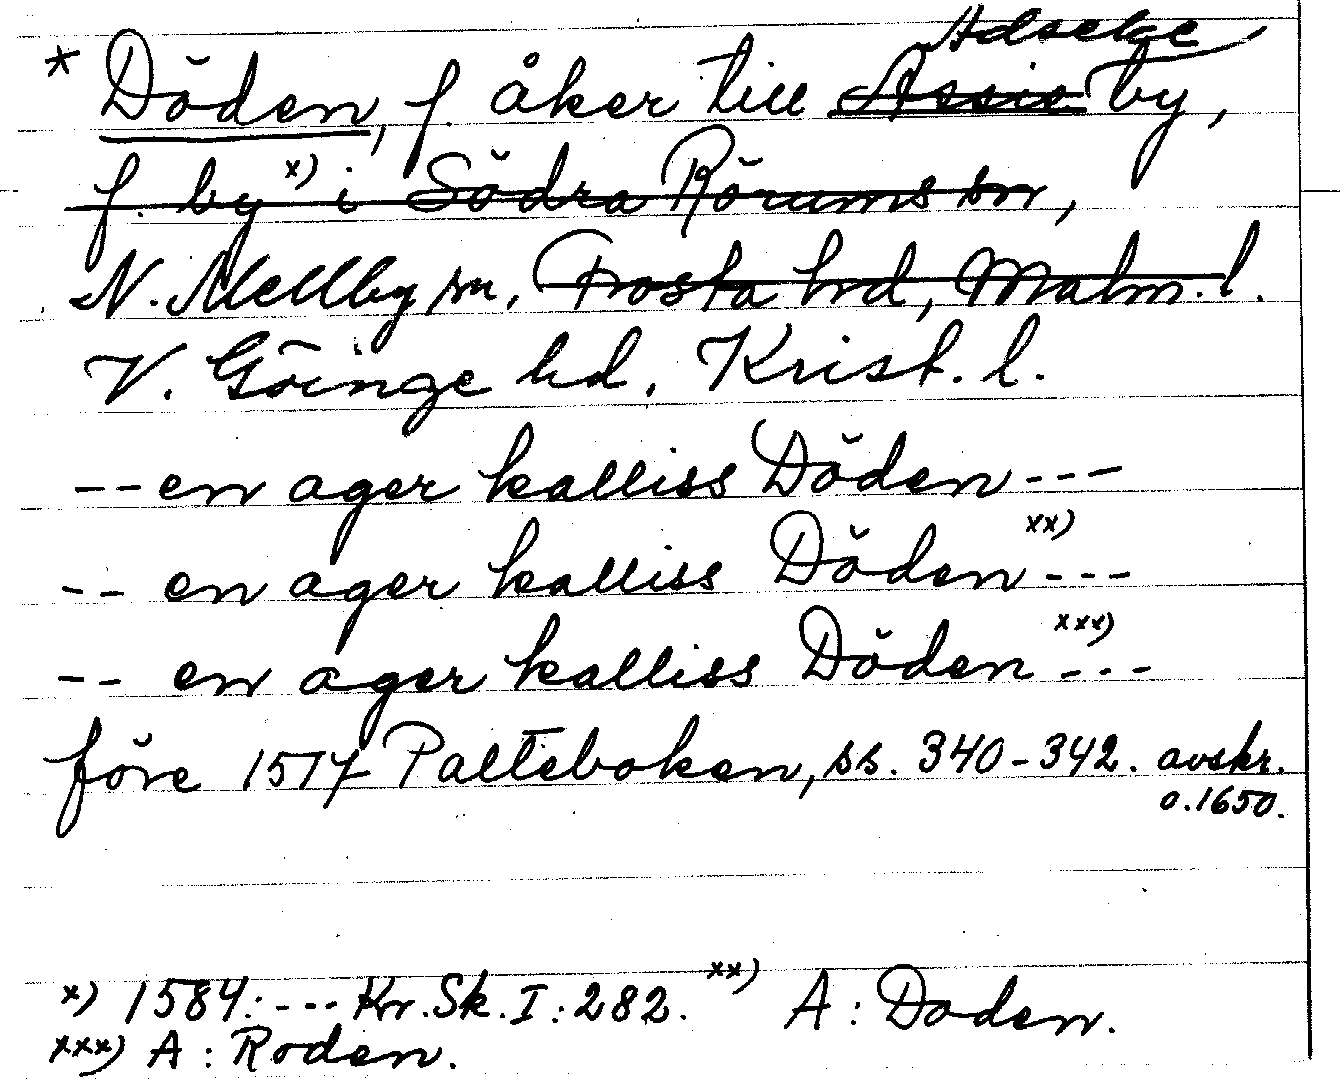 Adseke
* Döden, f. åker till Assio by,
f. by x) i Södra Rörums sn,
N. Mellby sn, Frosta hd, Malm. l.
V. Göinge hd, Krist. l.
-- en ager kalliss Döden ---
-- en ager kalliss Döden xx) ---
-- en ager kalliss Döden xxx) ---
före 1517 Palteboken, ss. 340-342. avskr.
o. 1650.
x) 1584: --- Kr. Sk. I: 282. xx) A: Doden.
xxx) A: Roden.